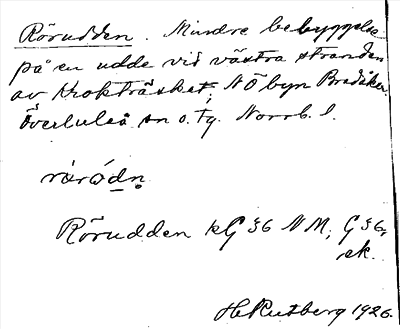 Rörudden. Mindre bebyggelse
på en udde vid västra stranden
av Kroktråsket, NÖ byn Bredåker
Överluleå sn o. tg. Norrb. l.
rö̀rɷ́dn̥.
Rörudden kG 36 NM, G 36,
ek.
H Rutberg 1926.